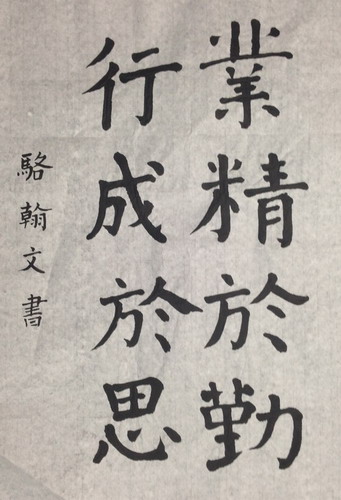 業精於勤
行成於思
駱翰文書